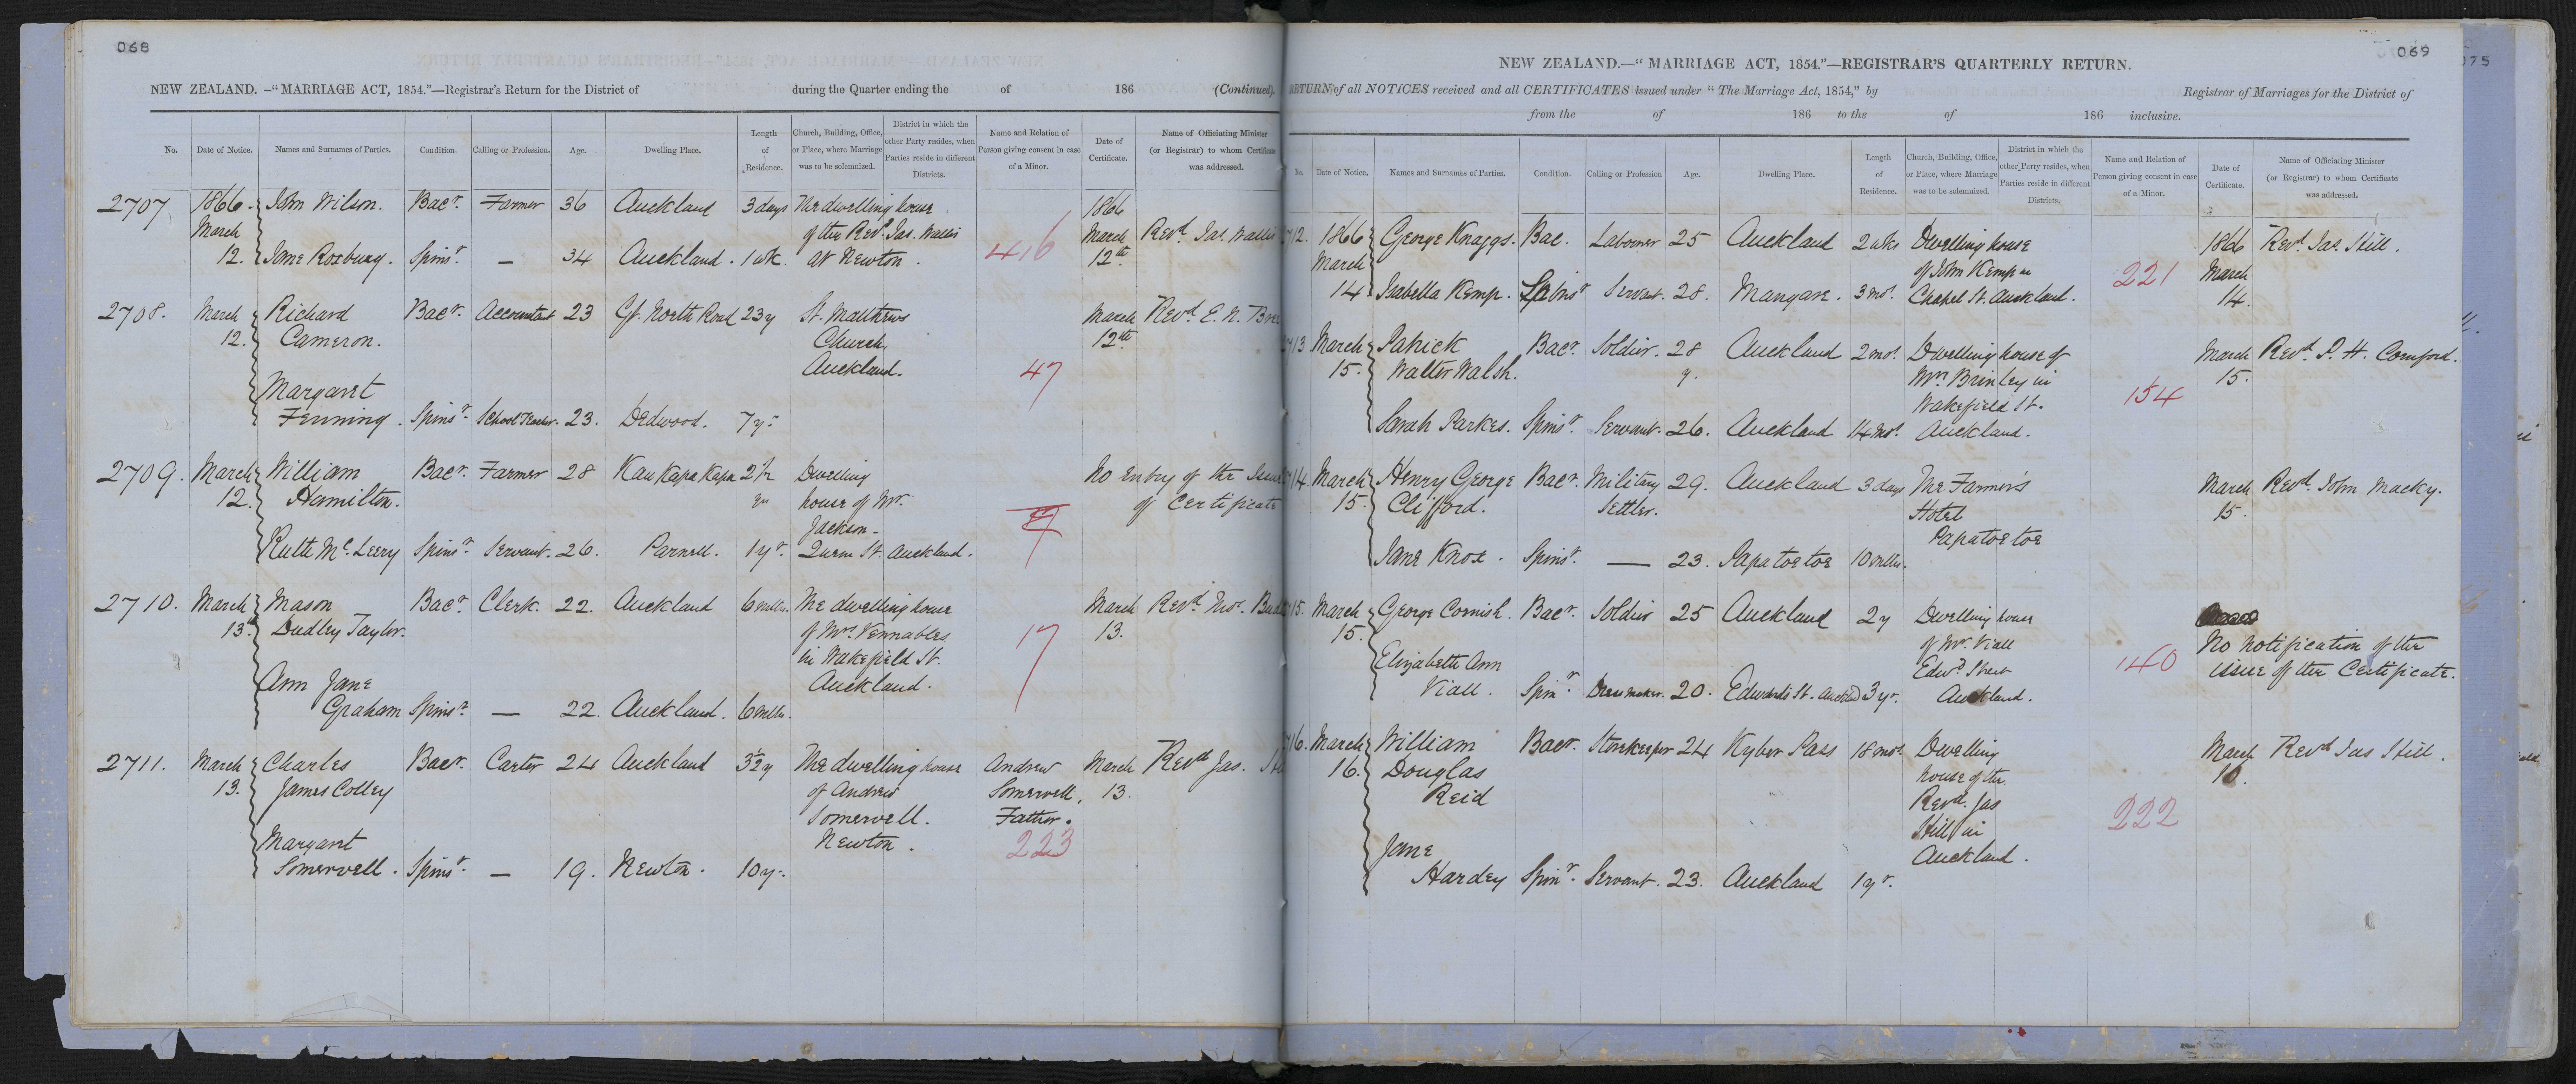 068
NEW ZEALAND. —"MARRIAGE ACT, 1854."—Registrar's Return for the District of during the Quarter ending the of 186 (Continued).
No. Date of Notice. Names and Surnames of Parties. Condition. Calling or Profession. Age. Dwelling Place. Length of Residence. Church, Building, Office, or Place, where Marriage was to be solemnized. District in which the other Party resides, when Parties reside in different Districts. Name and Relation of Person giving consent in case of a Minor. Date of Certificate. Name of Officiating Minister (or Registrar) to whom Certificate was addressed.
2707 1866 John Wilson. Bacr. Farmer 36 Auckland 3 days The dwelling house 1866
March of the Revd. Jas. Wallis March Revd. Jas. Wallis
12. Jane Roxburg. Spinsr. — 34 Auckland. 1 wk. at Newton. 416 12th
2708. March Richard Bacr. Accountant 23 Gt. North Road 23 y St. Matthews March Revd. E. N.
12. Cameron. Church, 12th
Auckland. 47
Margaret
Fenning. Spinsr. School Teacher. 23. Dedwood. 7 y.
2709. March William Bacr. Farmer 28 Kau Kapa Kapa 2½ Dwelling No Entry of the
12. Hamilton. house of Mr. of Certificate
Jackson-
Ruth Mc. Leery Spinsr. Servant. 26. Parnell. 1 yr. Queen St. Auckland.
2710. March Mason Bacr. Clerk. 22. Auckland 6 mths. The dwelling house March Revd. Thos.
13th Dudley Taylor. of Mrs. Vennables 17 13.
in Wakefield St.
Ann Jane Auckland.
Graham Spinsr. — 22. Auckland. 6 mths.
2711. March Charles Bacr. Carter 24 Auckland 3½ y The dwelling house Andrew March Revd. Jas.
13. James Colley of Andrew Somervell, 13.
Somervell. Father.
Margaret Newton. 223
Somervell. Spinsr. — 19. Newton. 10 y.
069
NEW ZEALAND.—"MARRIAGE ACT, 1854."—REGISTRAR'S QUARTERLY RETURN.
RETURN of all NOTICES received and all CERTIFICATES issued under "The Marriage Act, 1854," by Registrar of Marriages for the District of
from the of 186 to the of 186 inclusive.
No. Date of Notice. Names and Surnames of Parties. Condition. Calling or Profession Age. Dwelling Place. Length of Residence. Church, Building, Office, or Place, where Marriage was to be solemnized. District in which the other Party resides, when Parties reside in different Districts. Name and Relation of Person giving consent in case of a Minor. Date of Certificate. Name of Officiating Minister (or Registrar) to whom Certificate was addressed.
12. 1866 George Knaggs. Bac. Labourer 25 Auckland 2 wks Dwelling house 1866 Revd. Jas. Still.
March of John Kemp in 221 March
14 Isabella Kemp. Spinsr Servant. 28. Mangare. 3 mos. Chapel St. Auckland. 14.
13 March Patrick Bacr. Soldier. 28 Auckland 2 mos. Dwelling house of March Revd. P. H. Cornford.
15. Walter Walsh. y. Mrs Brinley in 154 15.
Wakefield St.
Sarah Parkes. Spinsr. Servant. 26. Auckland 14 mos. Auckland.
14. March Henry George Bacr. Military 29. Auckland 3 days The Farmer's March Revd. John Macky.
15. Clifford. Settler. Hotel 15.
Papatoetoe
Jane Knox. Spinsr. — 23. Papatoetoe 10 mths.
15. March George Cornish. Bacr. Soldier 25 Auckland 2 y Dwelling house
15. of Mr. Viall No notification of the
Elizabeth Ann Edwd. Street 140 issue of the Certificate.
Viall. Spinr. Dressmaker. 20. Edwards St. Auckland 3 yr. Auckland.
16. March William Bacr. Storekeeper 24 Kyber Pass 18 mos. Dwelling March Revd Jas Still.
16. Douglas house of the 16.
Reid Revd. Jas 222
Still in
Jane Auckland.
Hardey Spinr. Servant. 23. Auckland 1 yr.
075